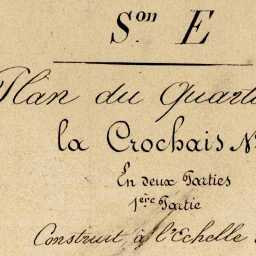 Son E
Plan du Quarti
la Crochais N
En deux Parties
1ère Partie
Construit à l'Echelle